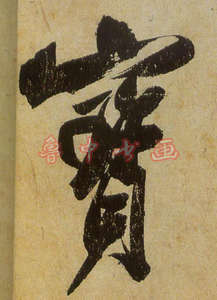 寶
鲁中书画